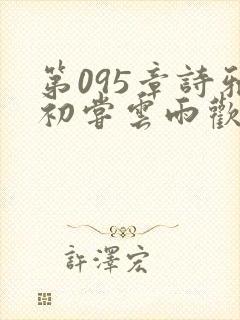 第095章詩雅
初嘗雲雨歡
許澤宏